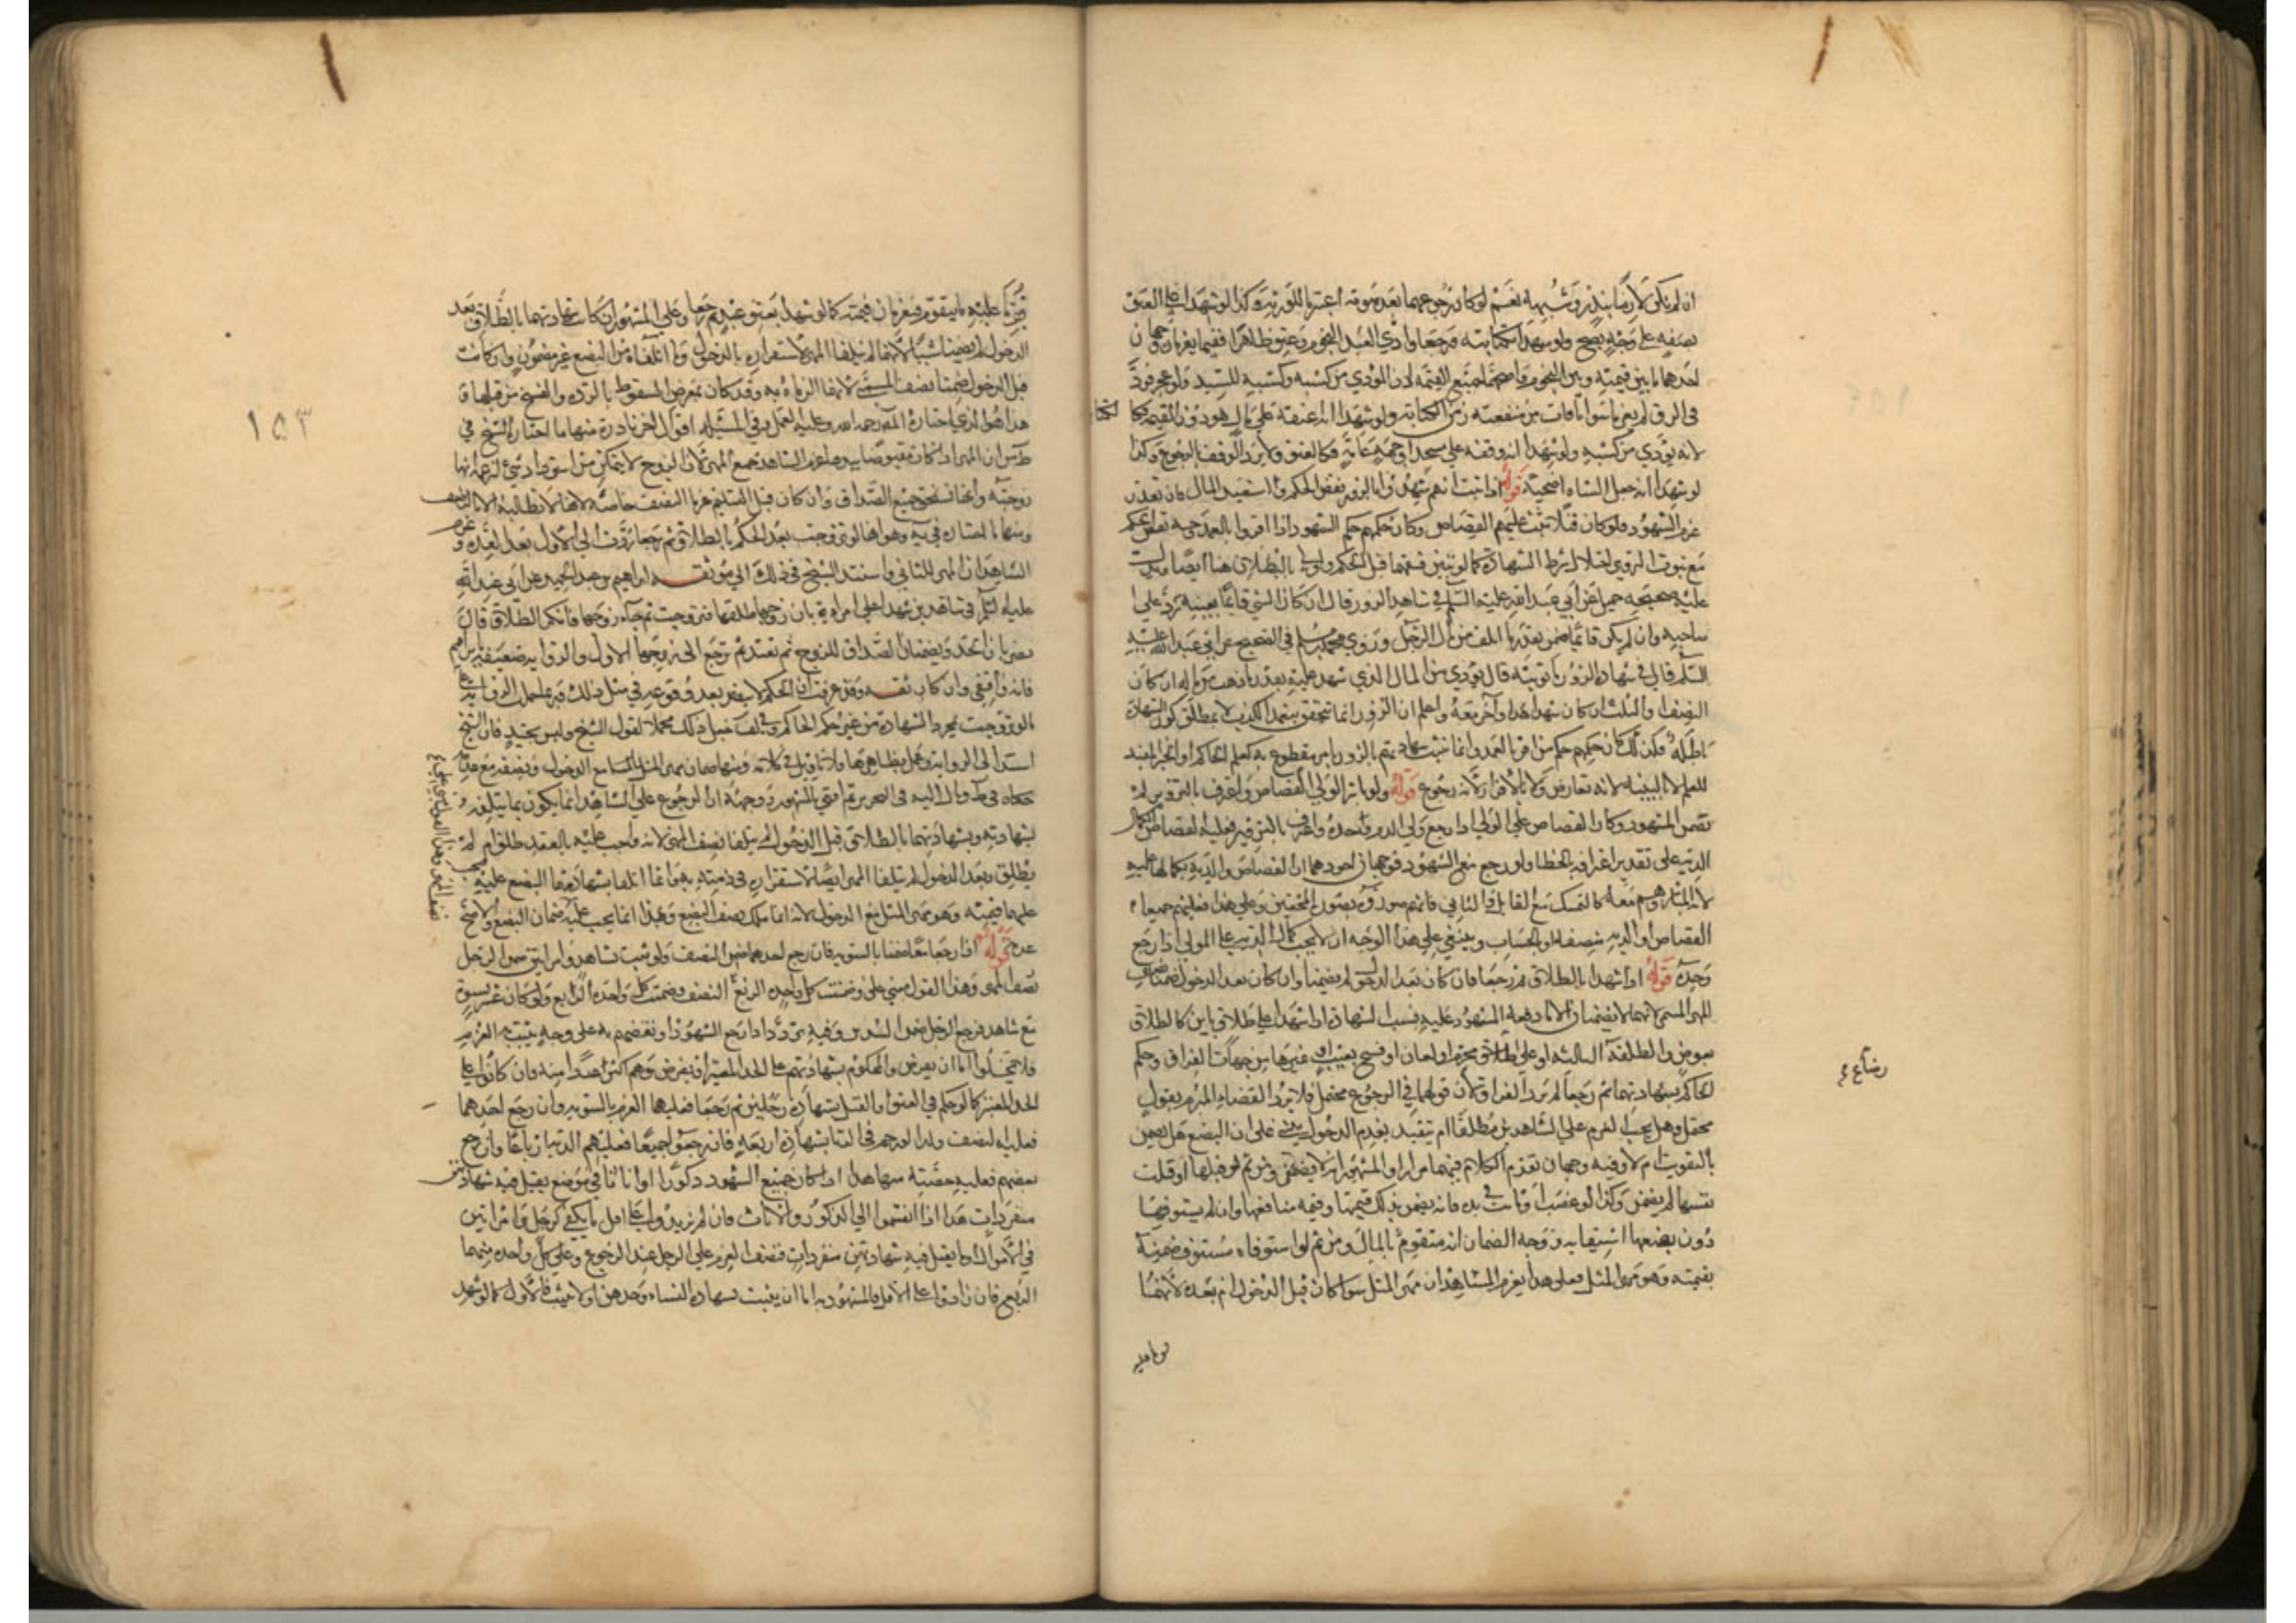 ان لم يكن لازما بنذر وشبهه نعم لو كان رجوعهما بعد موته اغتربا للورثة وكذا لو شهدا على العتق
نصفه على وجه يصح ولو شهدا بكتابته فرجعا وادي العبد النجوم وعتق ظاهرا ففيما يغرمان وجهان
احدهما ما بين قيمته وبين النجوم واصحهما جميع القيمة لان المودي من كسبه وكسبه للسيد ولو عجز فرد
في الرق لم يغرما سوا ما فات من منفعته زمن الكتابة ولو شهدا انه اعتقه على مال هو دون القيمة فكا لكتابة
لانه يودي من كسبه ولو شهدا انه وقفه على مسجد او جهة عامة فكالعتق ولا يرد الوقف بالرجوع وكذا
لو شهدا انه جعل الشاه اضحية قوله اذا ثبت انهم شهدوا بالزور نقض الحكم واستعيد المال فان تعذر
غرم الشهود ولو كان قتلا ثبت عليهم القصاص وكان حكمهم حكم الشهود اذا اقروا بالعمد
مع ثبوت الزور اختلال شرط الشهادة كما لو تبين فسقهما قبل الحكم واولى بالبطلان هنا ايضا
عليه صحيحه جميل عن أبي عبد الله عليه السلم في شاهد الزور قال ان كان الشي قائما بعينه رد على
صاحبه وان لم يكن قائما ضمن بقدر ما اتلف من مال الرجل وروي محمد بن مسلم في الصحيح عن ابي عبد الله عليه
السلم قال في شهادة الزور ما توبته قال يودي من المال الذي شهد عليه بقدر ما ذهب من ماله ان كان
النصف او الثلث ان كان شهد هذا وآخر معه واعلم ان الزور انما تتحقق بتعمد الكذب لا بمطلق كون الشهادة
باطله فلذلك كان حكمهم حكم من اقر بالعمد وانما تثبت شهادتهم بالزور بامر مقطوع به كعلم الحاكم او الخبر المفيد
للعلم لا بالبينة لانه تعارض ولا بالاقرار لانه رجوع قوله ولو باشر الولي القصاص واعترف بالتزوير لم
تضمن الشهود وكان القصاص على الولي اذا رجع ولي الدم وحده واعترف بالتزوير فعليه القصاص او كمال
الدية على تقدير اعترافه بالخطا ولو رجع مع الشهود فوجهان احدهما ان القصاص والدية بكمالها عليه
لانه المباشر وهم معه كالممسك مع القاتل والثاني فانهم معه كالشريك لتعاونهم وعلى هذا فعليهم جميعا
القصاص او الدية منصفة او بالحساب وينبغي على هذا الوجه ان لا يجب كمال الدية على الولي اذا رجع
وحده قوله اذا شهدا بالطلاق ثم رجعا فان كان بعد الدخول لم يضمنا وان كان قبل الدخول ضمنا نصف
المهر المسمى لانهما لا يضمنان الا ما دفعه المشهود عليه بسبب الشهادة اذا شهدا على طلاق باين كالطلاق
بعوض والطلقة الثالثة او على طلاق محرم او لعان او فسخ بعيب او غيرها من جهات الفراق وحكم
الحاكم بشهادتهما ثم رجعا لم يرد الفراق لان قولهما في الرجوع محتمل فلا يرد القضاء المبرم بقول
محتمل وهل يجب الغرم على الشاهدين مطلقا ام تتقيد بعدم الدخول يبنى على ان البضع هل يضمن
بالتفويت ام لا وفيه وجهان تقدم الكلام فيهما مرارا والمشهور انه لا يضمن ومن ثم لو قتلها او قتلت
نفسها لم يضمن وكذا لو غصب امة وماتت في يده فانه يضمن بذلك قيمتها وقيمة منافعها وان لم يستوفها
دون بضعها الا باستيفائه ووجه الضمان انه متقوم بالمال ومن ثم لو استوفاه مستوف ضمنه
بقيمته وهو مهر المثل فعلى هذا يغرم الشاهدان مهر المثل سوا كان قبل الدخول ام بعده لانهما
فوتا عليه
رضاع ع
١٥٣
فوتا عليه ما يتقوم فيغرمان قيمته كما لو شهدا بعتق عبد ثم رجعا وعلى المشهور ان كانت شهادتهما بالطلاق بعد
الدخول لم يضمنا شيئا لانهما لم يتلفا المهر لاستقراره بالدخول وما اتلفاه من البضع غير مضمون وان كانت
قبل الدخول ضمنا نصف المسمى لانهما الزماه به وقد كان بمعرض السقوط بالردة والفسخ من قبلها و
هذا هو الذي اختاره المص رحمه الله وعليه العمل وفي المسئلة اقوال اخر نادرة منها ما اختاره الشيخ في
ط من ان المهر اذا كان مقبوضا بيدها غرم الشاهد جميع المهر لان الزوج لا يتمكن من استرداد شي لزعمه انها
زوجته وانها تستحق جميع الصداق وان كان قبل التسليم غرما النصف خاصة لانها لا تطالبه الا بالنصف
ومنها ما اختاره في يه وهو انها لو تزوجت بعد الحكم بالطلاق ثم رجعا ردت الى الاول بعد العدة و غرم
الشاهدان المهر للثاني واستند الشيخ في ذلك الى موثقه ابراهيم بن عبد الحميد عن ابي عبد الله
عليه السلم في شاهدين شهدا على امراة بان زوجها طلقها فتزوجت ثم جاء زوجها فانكر الطلاق قال
يضربان الحد ويضمنان الصداق للزوج ثم تعتد ثم ترجع الى زوجها الاول والرواية ضعيفة بابراهيم
فانه واقفي وان كان ثقه وقد عرفت ان الحكم لا ينقض بعد وقوعه في مثل ذلك
تزوجت بمجرد الشهادة من غير حكم الحاكم وفي لف جعل ذلك محملا لقول الشيخ وليس بجيد فان الشيخ
استند الى الرواية وعمل بظاهرها ولا تاويل في كلامه ومنها ضمان مهر المثل مع الدخول ونصفه مع عدمه
حكاه في ط ومال اليه في التحرير ثم افتى بالمشهور ووجهه ان الرجوع على الشاهد انما يكون بما يتلفه
بشهادته وبشهادتهما بالطلاق قبل الدخول لم يتلفا نصف المهر لانه واجب عليه بالعقد طلق ام لم
يطلق وبعد الدخول لم يتلفا المهر ايضا لاستقراره في ذمته به وانما اتلفا بشهادتهما البضع عليه فيجب
عليهما قيمته وهو مهر المثل مع الدخول لانه انما ملك نصف البضع وهذا انما يجب عليه ضمان البضع والاصح
عدمه قوله اذا رجعا معا ضمنا بالسوية فان رجع احدهما ضمن النصف ولو ثبت بشاهد وامراتين ضمن الرجل
نصف المهر وهذا القول مبني على وضمنت كل واحدة الربع النصف وضمنت كل واحدة الرابع ولو كان عشر نسوة
مع شاهد فرجع الرجل ضمن السدس وفيه تردد اذا رجع الشهود او بعضهم على وجه يثبت به الغرم
فلا يخلوا اما ان يفرض والمحكوم بشهادتهم على الحد المعتبر او يفرض وهم اكثر عددا منه فان كانوا على
الحد المعتبر كما لو حكم في العتق او القتل بشهادة رجلين ثم رجعا فعليهما الغرم بالسوية وان رجع احدهما
فعليه النصف وكذا لو رجم في الزنا بشهادة اربعة فان رجعوا جميعا فعليهم الدية ارباعا وان رجع
بعضهم فعليه حصته منها هذا اذا كان جميع الشهود ذكورا او اناثا في موضع يقبل فيه شهادتهن
منفردات هذا اذا انقسموا الى الذكور والاناث فان لم يزيدوا على اقل ما يكفي كرجل وامراتين
في الاموال او ما يقبل فيه شهادتهن منفردات فنصف الغرم على الرجل عند الرجوع وعلى كل واحدة منهما
الربع فان زادوا على الاقل فالمشهود به اما ان يثبت بشهادة النساء وحدهن او لا يثبت فالاول كما لو شهد